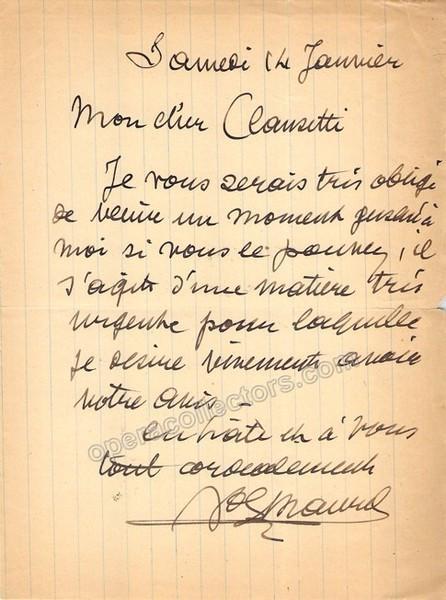 Samedi 14 Janvier
Mon cher Clausetti
Je vous serais très obligé
de venir un moment jusqu'à
moi si vous le pouvez, il
s'agit d'une matière très
urgente pour laquelle
je désire vivement avoir
votre avis –
En hâte et à vous
tout cordialement
Maurel
operacollectors.com